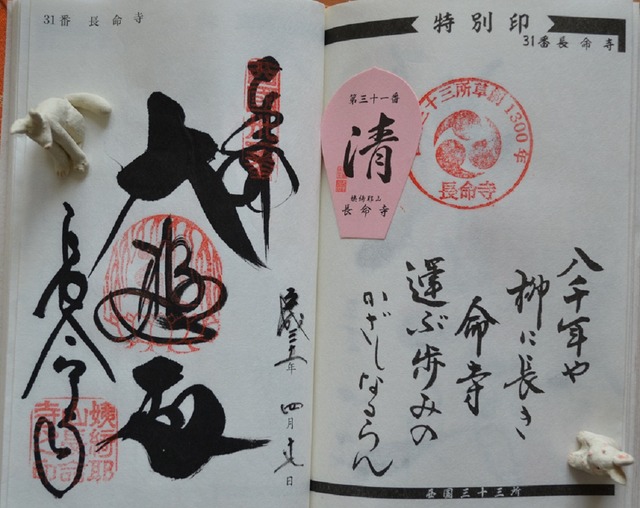 31番 長命寺
奉拝
長命寺
四月十七日
特別印
31番長命寺
第三十一番
清
姨綺耶山
長命寺
十三所草創1300年
長命寺
八千年や
柳に長き
命寺
運ぶ歩みの
かざしなるらん
西国三十三所